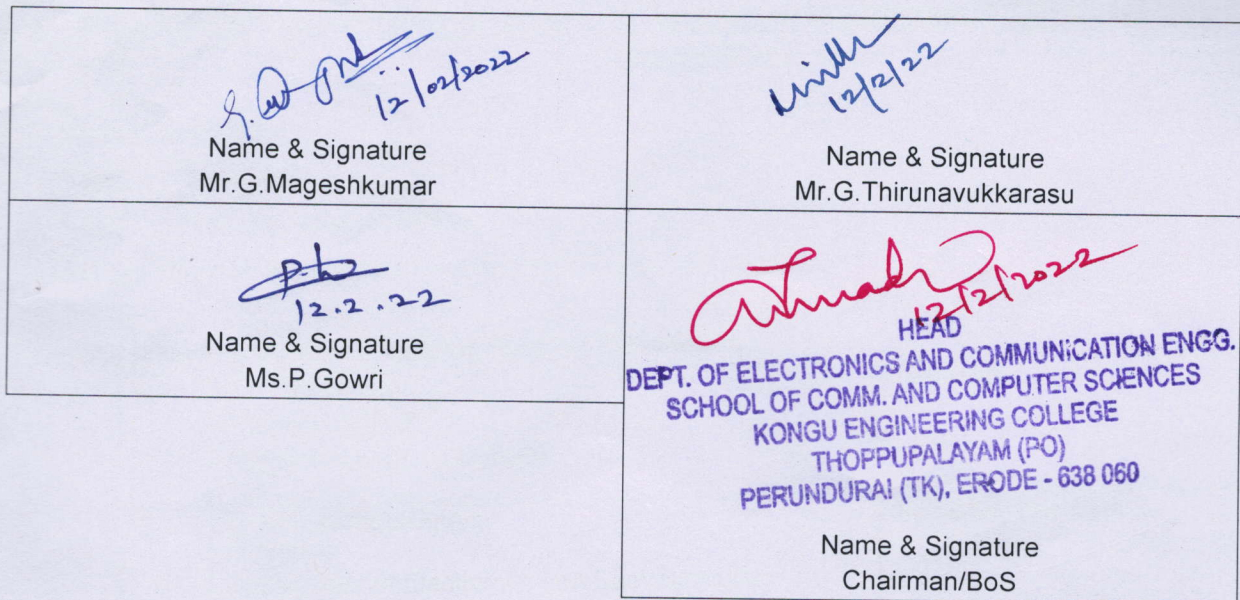 12/02/2022
Name & Signature
Mr.G.Mageshkumar
12/2/22
Name & Signature
Mr.G.Thirunavukkarasu
12.2.22
Name & Signature
Ms.P.Gowri
12/2/2022
HEAD
DEPT. OF ELECTRONICS AND COMMUNICATION ENGG.
SCHOOL OF COMM. AND COMPUTER SCIENCES
KONGU ENGINEERING COLLEGE
THOPPUPALAYAM (PO)
PERUNDURAI (TK), ERODE - 638 060
Name & Signature
Chairman/BoS